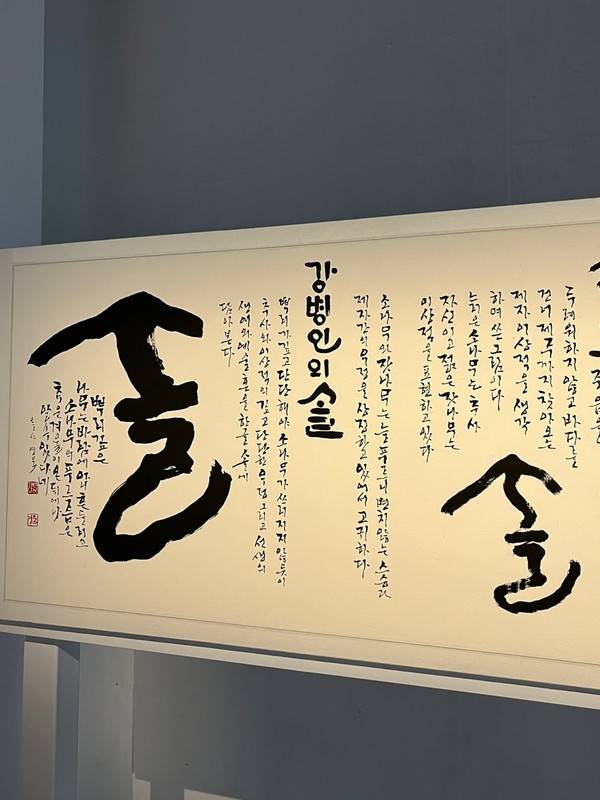 죽음을
두려워하지 않고 바다를
건너 제주까지 찾아온
제자 이상적을 생각
하며 쓴 그림이다
늙은 소나무는 추사
자신이고 젊은 잣나무는
이상적을 표현하고 있다
솔
소나무와 잣나무는 늘 푸르니 변치않는 스승과
제자간의 우정을 상징하고 있어서 고귀하다
강병인의 솔
뿌리가 깊고 단단해야 소나무가 쓰러지지 않듯이
추사와 이상적의 깊고 단단한 우정 그리고 선생의
생애와 예술혼을 한글 솔에
담아본다
솔
뿌리깊은
나무는 바람에 아니 흔들리고
소나무의 푸르름은
추운 겨울이 온 뒤에야
알 수 있다네